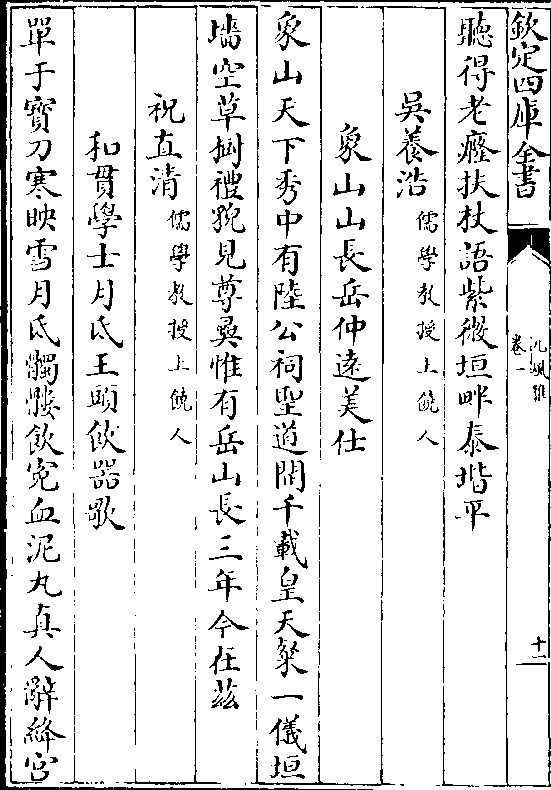 欽定四庫全書
卷一
十一
聽得老癃扶杖語紫微垣畔泰堦平
吳養浩儒學教授上饒人
象山山長岳仲遠美仕
象山天下秀中有陸公祠聖道開千載皇天粲一儀垣
墻空草樹禮貌見尊彛惟有岳山長三年今在兹
祝直清儒學教授上饒人
和貫學士月氏王頭飲器歌
單于寳刀寒映雪月氏髑髏飲寃血泥丸真人辭絳宫